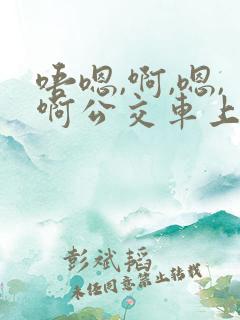 唔嗯,啊,嗯,
啊公交车上
彭斌韬
未经同意禁止转载